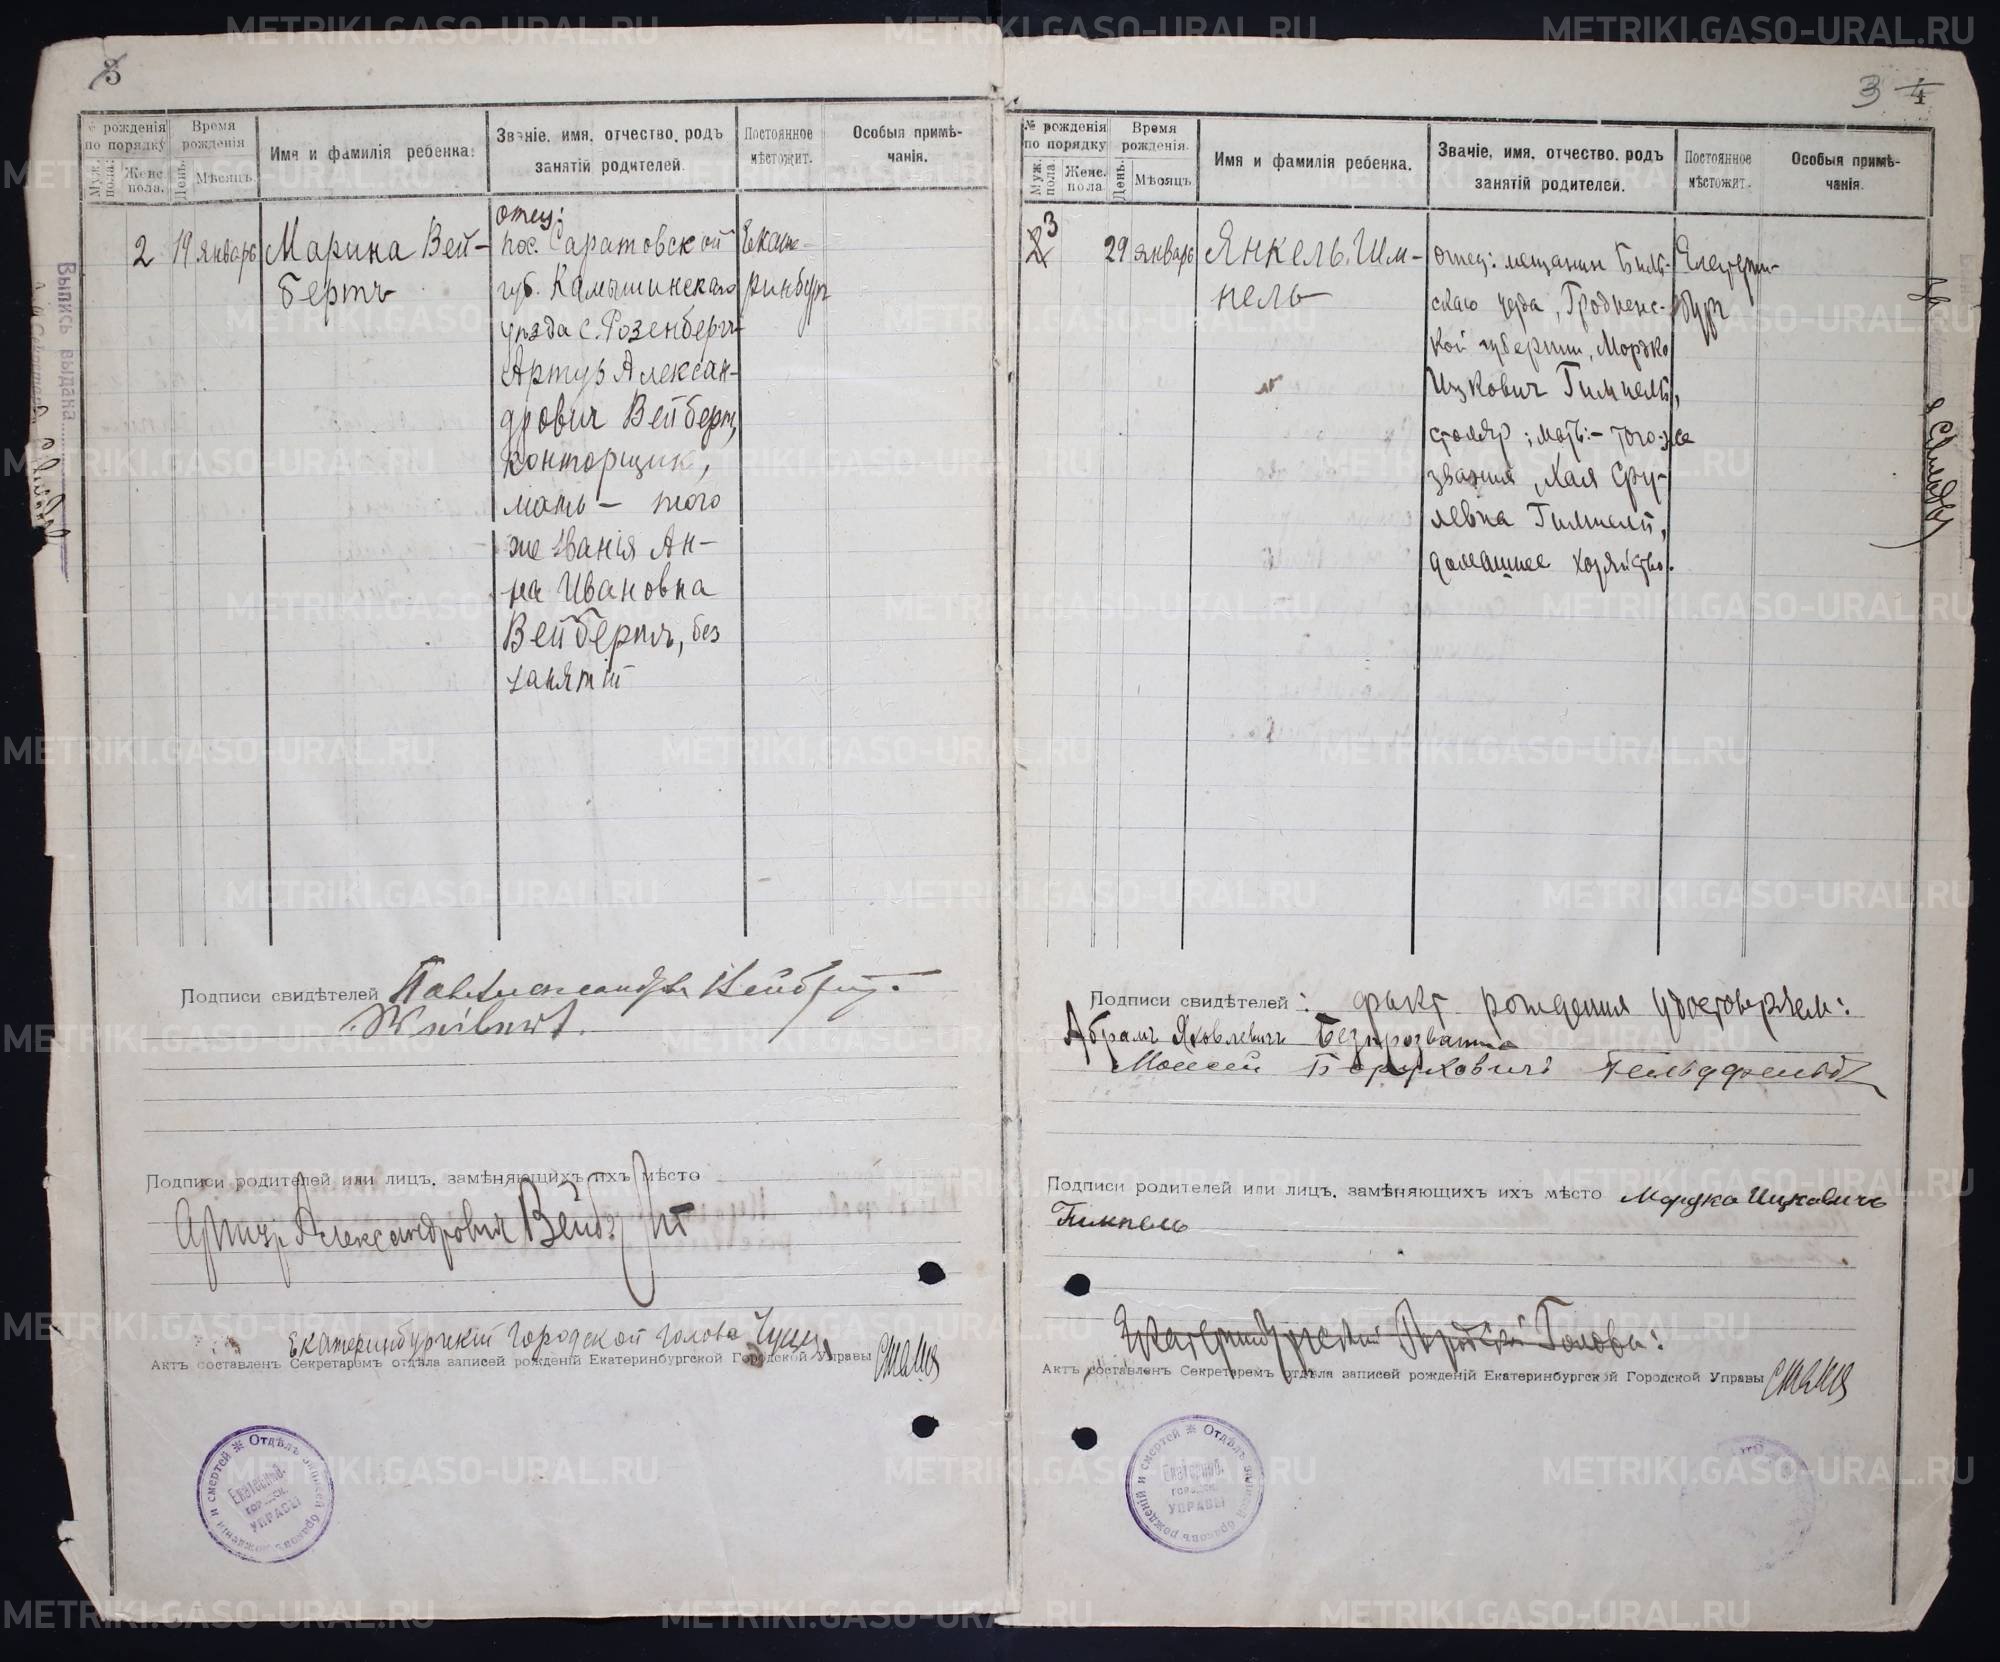 3
№ рожденія по порядку
Муж. пола.
Женс. пола.
Время рожденія
День.
Мѣсяцъ.
Имя и фамилія ребенка.
Званіе, имя, отчество, родъ занятій родителей.
Постоянное мѣстожит.
Особыя примѣчанія.
2
19
январь
Марина Вей-
бертъ
отец:
пос. Саратовской
губ. Камышинскаго
уѣзда с. Розенбергъ
Артур Алексан-
дрович Вейберт,
конторщик,
мать – того
же званія Ан-
на Ивановна
Вейбертъ, без
занятій
Екате-
ринбург
Выпись выдана
Подписи свидѣтелей
Подписи родителей или лицъ, замѣняющихъ ихъ мѣсто
Артур Александрович Вейберт
Екатеринбургский городской голова
Актъ составленъ Секретаремъ отдѣла записей рожденій Екатеринбургской Городской Управы
Отдѣлъ записей браковъ рожденій и смертей
Екатеринб.
городск.
УПРАВЫ
3 4
№ рожденія по порядку
Муж. пола
Женс. пола
Время рожденія.
День.
Мѣсяцъ
Имя и фамилія ребенка.
Званіе, имя, отчество, родъ занятій родителей.
Постоянное мѣстожит.
Особыя примѣчанія.
2 3
29
январь
Янкель Гим-
пель
отец: мещанин Бель-
скаго уезда, Гроднен-
ской губернии, Мордко
Ицкович Гимпель,
столяр; мать:– того-же
звания, Хая Сру-
левна Гимпель,
домашнее хозяйство.
Екатерин-
бург
Подписи свидѣтелей: факт рождения удостоверяем:
Абрамъ Яковлевичъ
Моисей Боруховичъ Гельдфельдъ
Подписи родителей или лицъ, замѣняющихъ ихъ мѣсто Мордко Ицковичъ
Гимпель
Екатеринбургский Городской Голова:
Актъ составленъ Секретаремъ отдѣла записей рожденій Екатеринбургской Городской Управы
Отдѣлъ записей браковъ рожденій и смертей
Екатеринб.
городск.
УПРАВЫ
METRIKI.GASO-URAL.RU